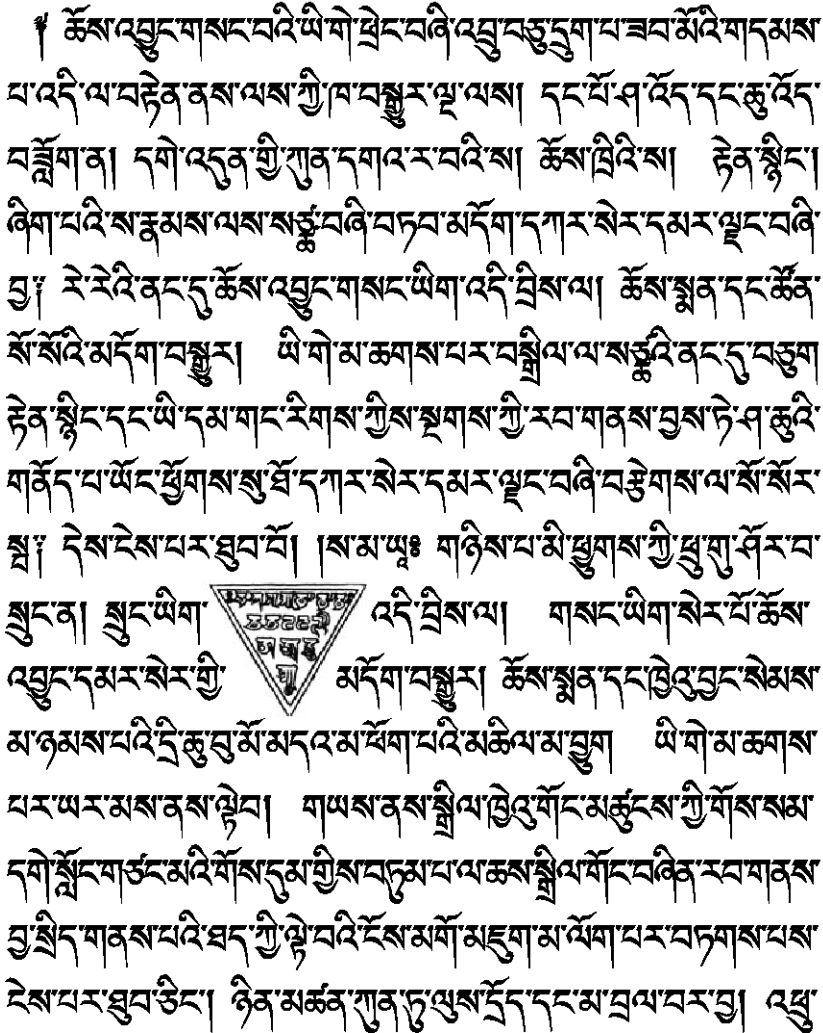 ༈ ཆོས་འབྱུང་གསང་བའི་ཡི་གེ་ཕྲེང་བཞི་འབྲུ་བཅུ་དྲུག་པ་ཟབ་མོའི་གདམས་
པ་འདི་ལ་བརྟེན་ནས་ལས་ཀྱི་ཁ་བསྒྱུར་ལྔ་ལས། དང་པོ་ཤ་འོད་དང་ཆུ་འོད་
བཟློག་ན། དགེ་འདུན་གྱི་ཀུན་དགའ་ར་བའི་ས། ཆོས་ཁྲིའི་ས། རྟེན་སྙིང་།
ཞིག་པའི་ས་རྣམས་ལས་སཙྪ་བཞི་བཏབ་མདོག་དཀར་སེར་དམར་ལྗང་བཞི་
བྱ༔ རེ་རེའི་ནང་དུ་ཆོས་འབྱུང་གསང་ཡིག་འདི་བྲིས་ལ། ཆོས་སྨན་དང་ཚོན་
སོ་སོའི་མདོག་བསྒྱུར། ཡི་གེ་མ་ཆགས་པར་བསྒྲིལ་ལ་སཙྪའི་ནང་དུ་བཅུག
རྟེན་སྙིང་དང་ཡི་དམ་གང་རིགས་ཀྱིས་སྔགས་ཀྱི་རབ་གནས་བྱས་ཏེ་ཤ་ཆུའི་
གནོད་པ་ཡོང་ཕྱོགས་སུ་ཐོ་དཀར་སེར་དམར་ལྗང་བཞི་བརྩེགས་ལ་སོ་སོར་
སྦ༔ དེས་ངེས་པར་ཐུབ་བོ། །ས་མ་ཡཱཿ གཉིས་པ་མི་ཕྱུགས་ཀྱི་ཕྲུ་གུ་ཤོར་བ་
སྲུང་ན། སྲུང་ཡིག་ འདི་བྲིས་ལ། གསང་ཡིག་སེར་པོ་ཆོས་
འབྱུང་དམར་སེར་གྱི་ མདོག་བསྒྱུར། ཆོས་སྨན་དང་ཁྱེའུ་བྱང་སེམས་
མ་ཉམས་པའི་དྲི་ཆུ་བུ་མོ་མདའ་མ་ཕོག་པའི་མཆིལ་མ་བྱུག ཡི་གེ་མ་ཆགས་
པར་ཡར་མས་ནས་ལྟེབ། གཡས་ནས་སྒྲིལ་ཁྱེའུ་གོང་མཚུངས་ཀྱི་གོས་སམ་
དགེ་སློང་གཙང་མའི་གོས་དུམ་གྱིས་བཏུམ་པ་ལ་ཆས་སྒྲིལ་གོང་བཞིན་རབ་གནས་
བྱ་སྲིད་གནས་པའི་ཐད་ཀྱི་ལྟེ་བའི་ངོས་མགོ་མཇུག་མ་ལོག་པར་བཏགས་པས་
ངེས་པར་ཐུབ་ཅིང་། ཉིན་མཚན་ཀུན་ཏུ་ལུས་དྲོད་དང་མ་བྲལ་བར་བྱ། འཕྲུ་